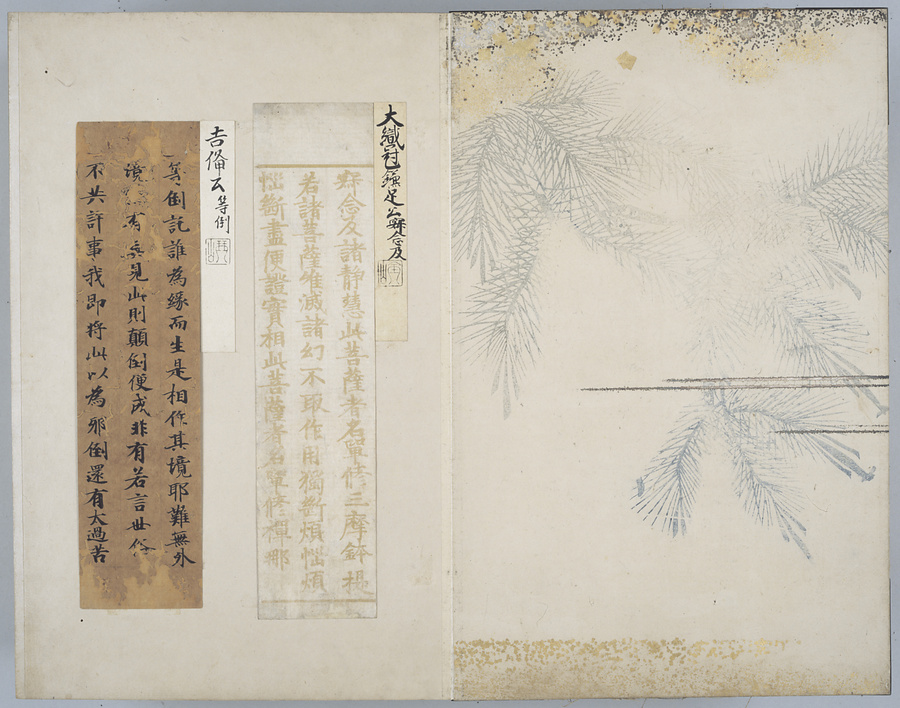 大織冠鎌足公寂念及
寂念及諸靜慧此菩薩者名單修三摩鉢提
若諸菩薩唯滅諸幻不取作用獨斷煩惱煩
惱斷盡便證實相此菩薩者名單修禪那
吉備公等倒
等倒託誰為緣而生是相作其境耶難無外
境有無見此則顛倒便成非有若言世俗
不共許事我即將此以為邪倒還有太過苦